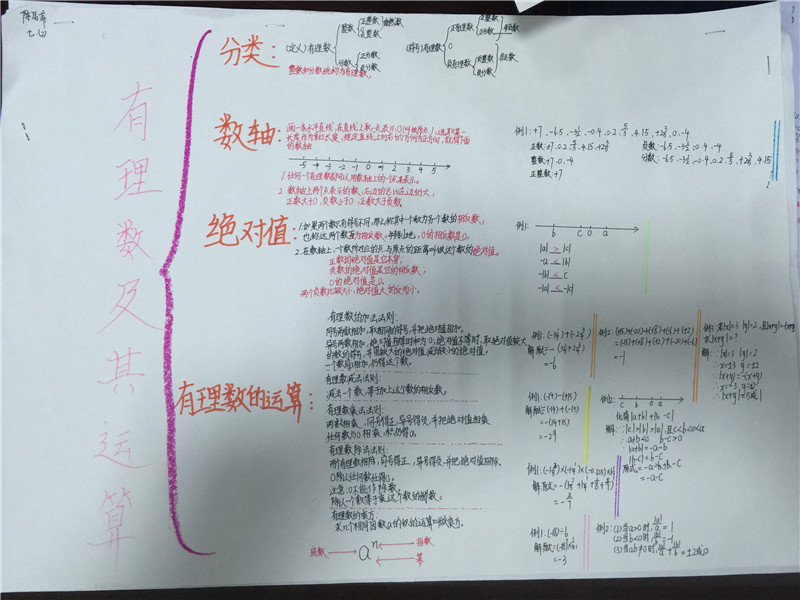 七.(2)
有理数及其运算
分类：
(定义)有理数
整数
正整数
自然数
负整数
分数
正分数
负分数
整数和分数统称为有理数。
(符号)有理数
正有理数
正整数
正分数
0
负有理数
负整数
负分数
数轴：
画一条水平直线，在直线上取一点表示0(叫做原点)，选取某一
长度作为单位长度，规定直线上向右的方向为正方向，就得到
的数轴
-5 -4 -3 -2 -1 0 1 2 3 4 5
1.任何一个有理数都可以用数轴上的一个点来表示。
2.数轴上两个点表示的数，右边的总比左边的大。
正数大于0，负数小于0，正数大于负数
例1：+7
正整数：+7
整数：+7、0、-4
绝对值：
1.如果两个数只有符号不同，那么称其中一个数为另一个数的相反数，
也称这两个数互为相反数。特别地，0的相反数是0。
2.在数轴上，一个数所对应的点与原点的距离叫做这个数的绝对值。
正数的绝对值是它本身；
负数的绝对值是它的相反数；
0的绝对值是0。
两个负数比较大小，绝对值大的反而小。
例1：
b c 0 a
|a| > |c|
-a ≤ |b|
-|b| ≤ c
-|a| ≤ -|c|
有理数的运算：
有理数的加法法则：
同号两数相加，取相同的符号，并把绝对值相加。
异号两数相加，绝对值相等时和为0；绝对值不等时，取绝对值较大
的数的符号，并用较大的绝对值减去较小的绝对值。
一个数同0相加，仍得这个数。
有理数减法法则：
减去一个数，等于加上这个数的相反数。
有理数乘法法则：
两数相乘，同号得正，异号得负，并把绝对值相乘
任何数与0相乘，积仍得0。
有理数除法法则：
两个有理数相除，同号得正，异号得负，并把绝对值相除。
0除以任何数都得0。
注意：0不能作除数。
除以一个数等于乘这个数的倒数。
有理数的乘方：
求几个相同因数a的积的运算叫做乘方。
底数 aⁿ 指数
幂
= -6
= -1
解：∵|x|=3 |y|=2
∴x=±3 y=±2
例1：(-14)-(+15)
解原式=(-14)+(-15)
=-(14+15)
=-29
例2：
c b 0 a
化简|a+b|+|b-c|
∴a+b<0 b-c>0
|a+b|=-a-b
|b-c|=b-c
原式=-a-b+b-c
=-a-c
例1：(-18)÷6
=-3